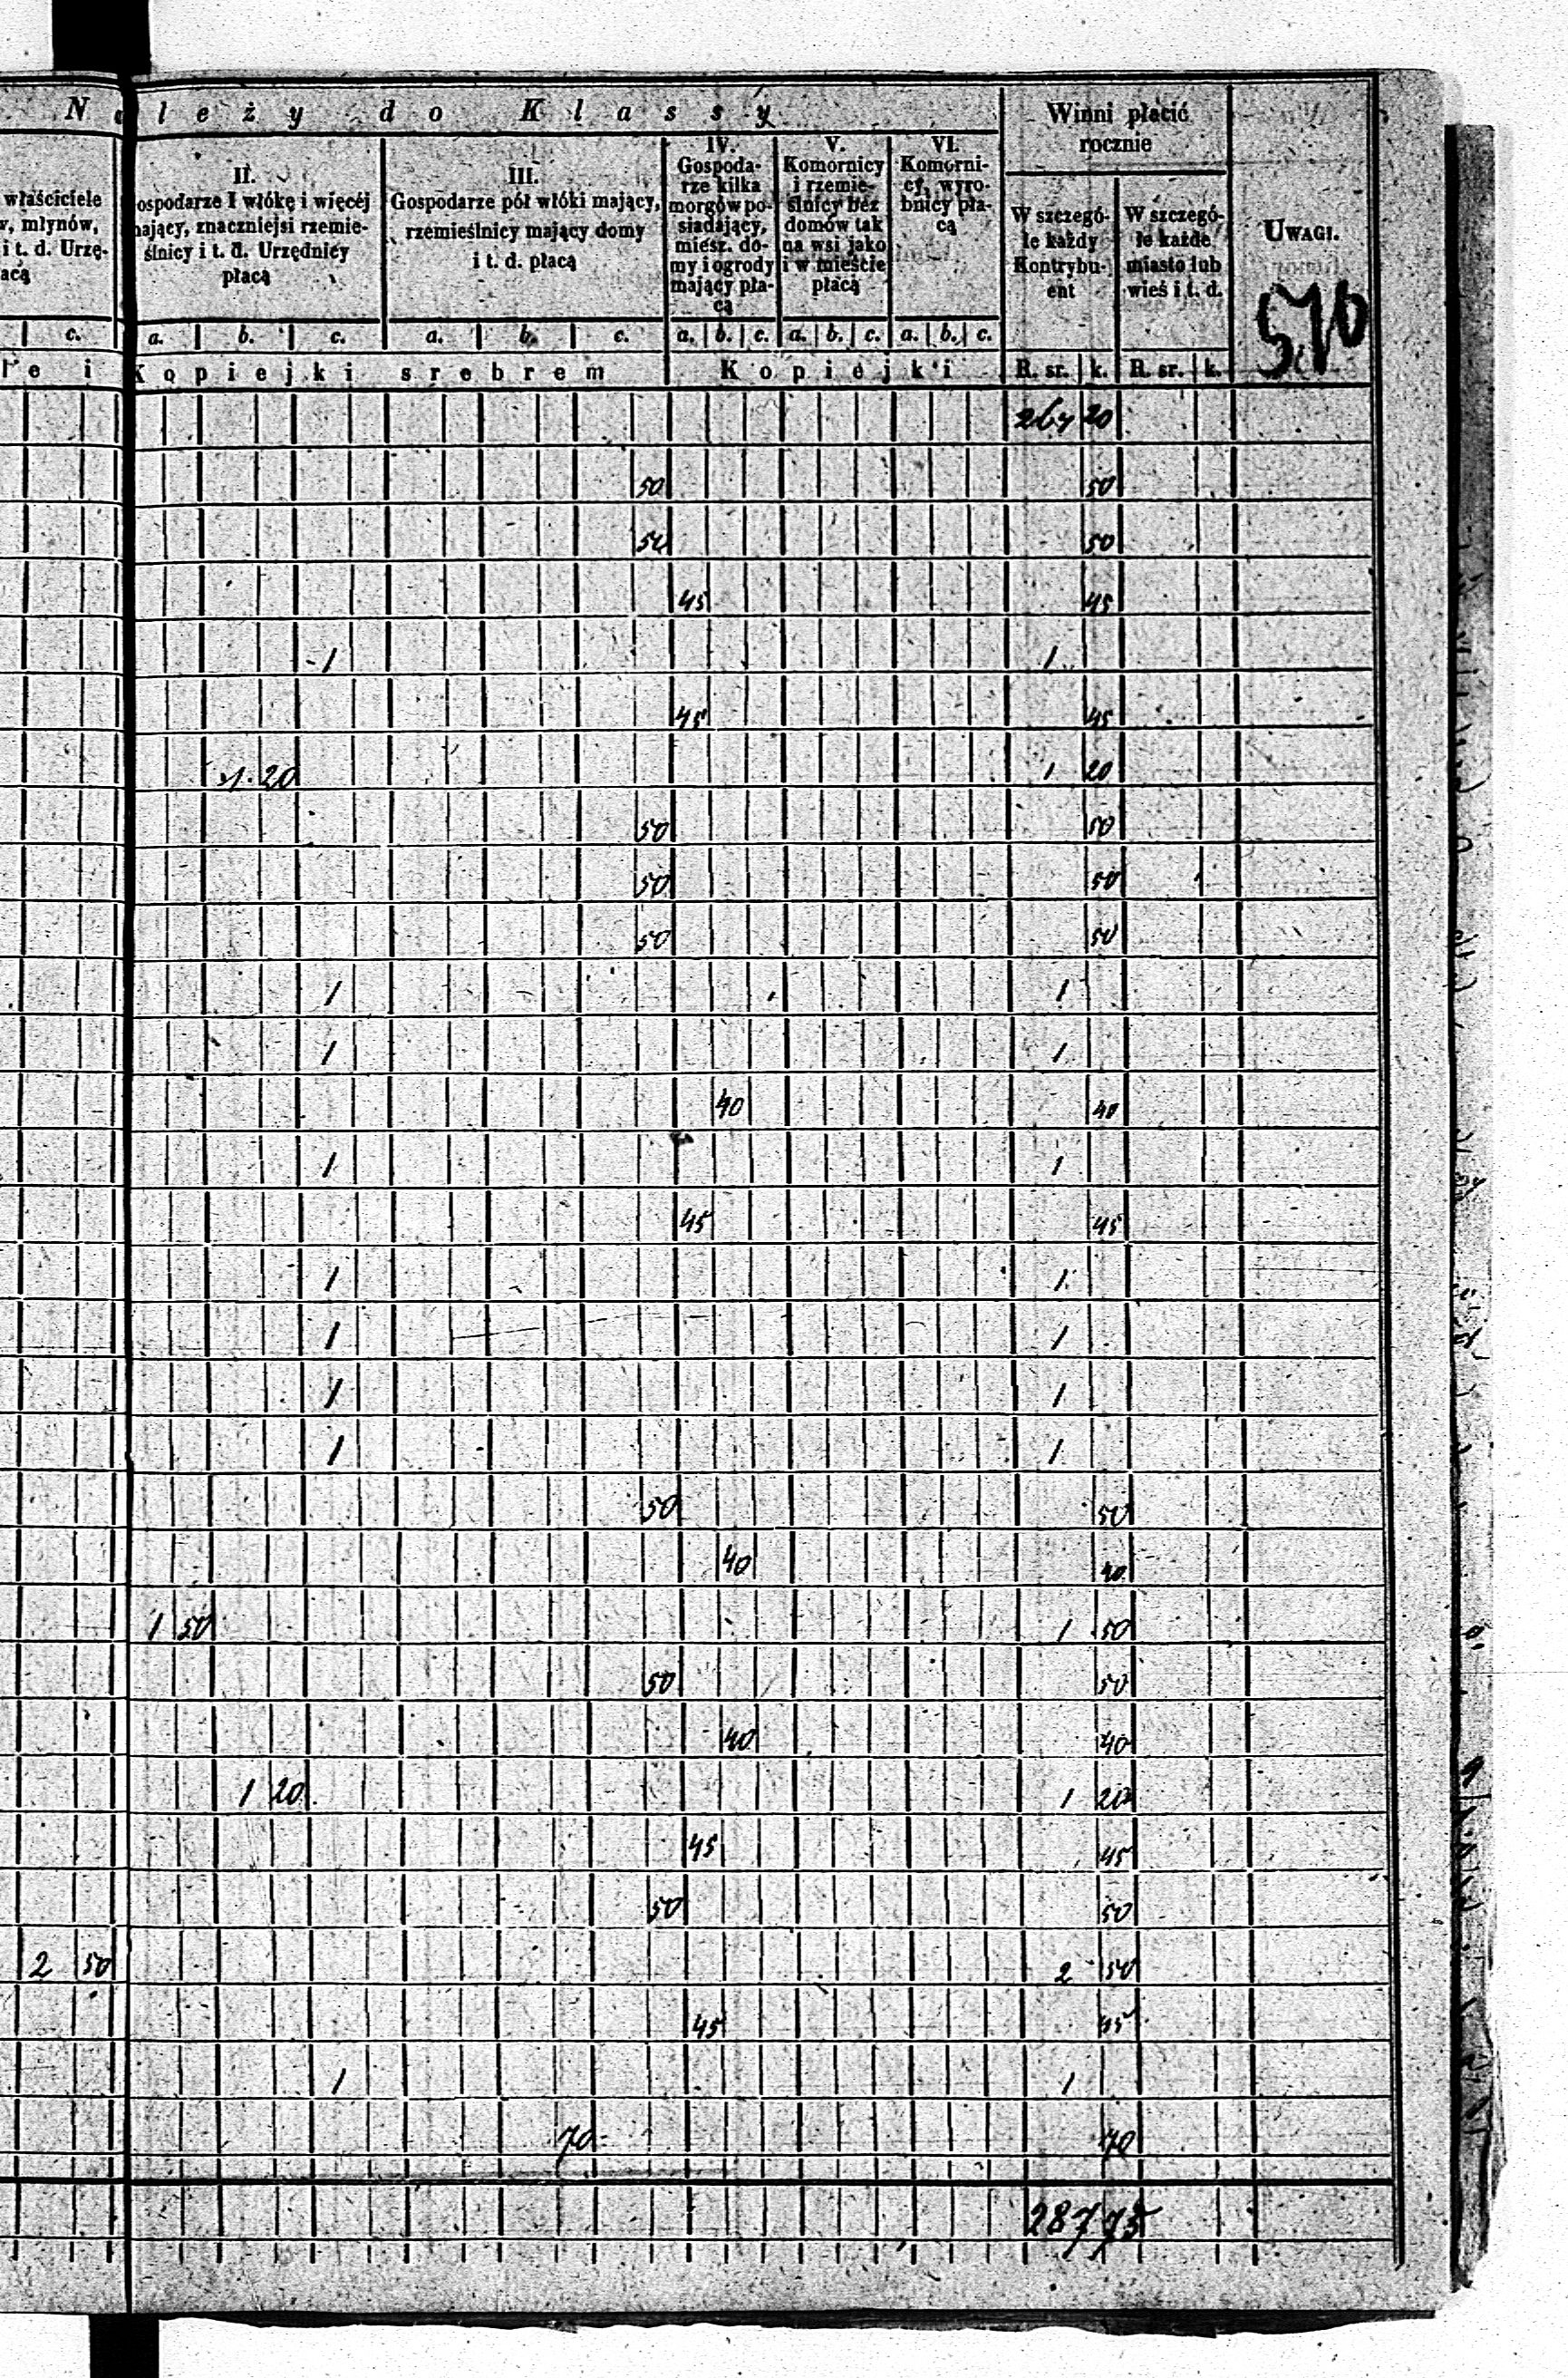 N leży do Klassy
Winni płacić rocznie
UWAGI.
właściciele
, młynów,
i t. d. Urzę-
acą
II.
ospodarze I włókę i więcéj
mający, znaczniejsi rzemie-
ślnicy i t. d. Urzędnicy
płacą
III.
Gospodarze pół włóki mający,
rzemieślnicy mający domy
i t. d. płacą
IV.
Gospoda-
rze kilka
morgów po-
siadający,
miesz. do-
my i ogrody
mający pła-
cą
V.
Komornicy
i rzemie-
ślnicy bez
domów tak
na wsi jako
i w mieście
płacą
VI.
Komorni-
cy, wyro-
bnicy pła-
cą
W szczegó-
le każdy
Kontrybu-
ent
W szczegó-
le każde
miasto lub
wieś i t. d.
570
c. a. b. c. a. b. c. a. b. c. a. b. c. a. b. c.
Kopiejki srebrem Kopiejki R. sr. k. R. sr. k.
267 20
50 50
50 50
45 45
1 1
45 45
1 20 1 20
50 50
50 50
50 50
1 1
1 1
40 40
1 1
45 45
1 1
1 1
1 1
1 1
50 50
40 40
1 50 1 50
50 50
40 40
1 20 1 20
45 45
50 50
2 50 2 50
45 45
1 1
70 70
287 75